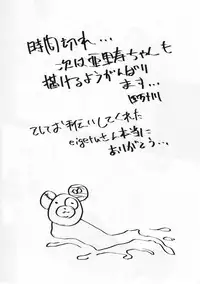 時間切れ…
次は亜里寿ちゃんも
描けるようがんばり
ます…
ていうかお手伝いしてくれた
eigetuさん本当に
ありがとう…